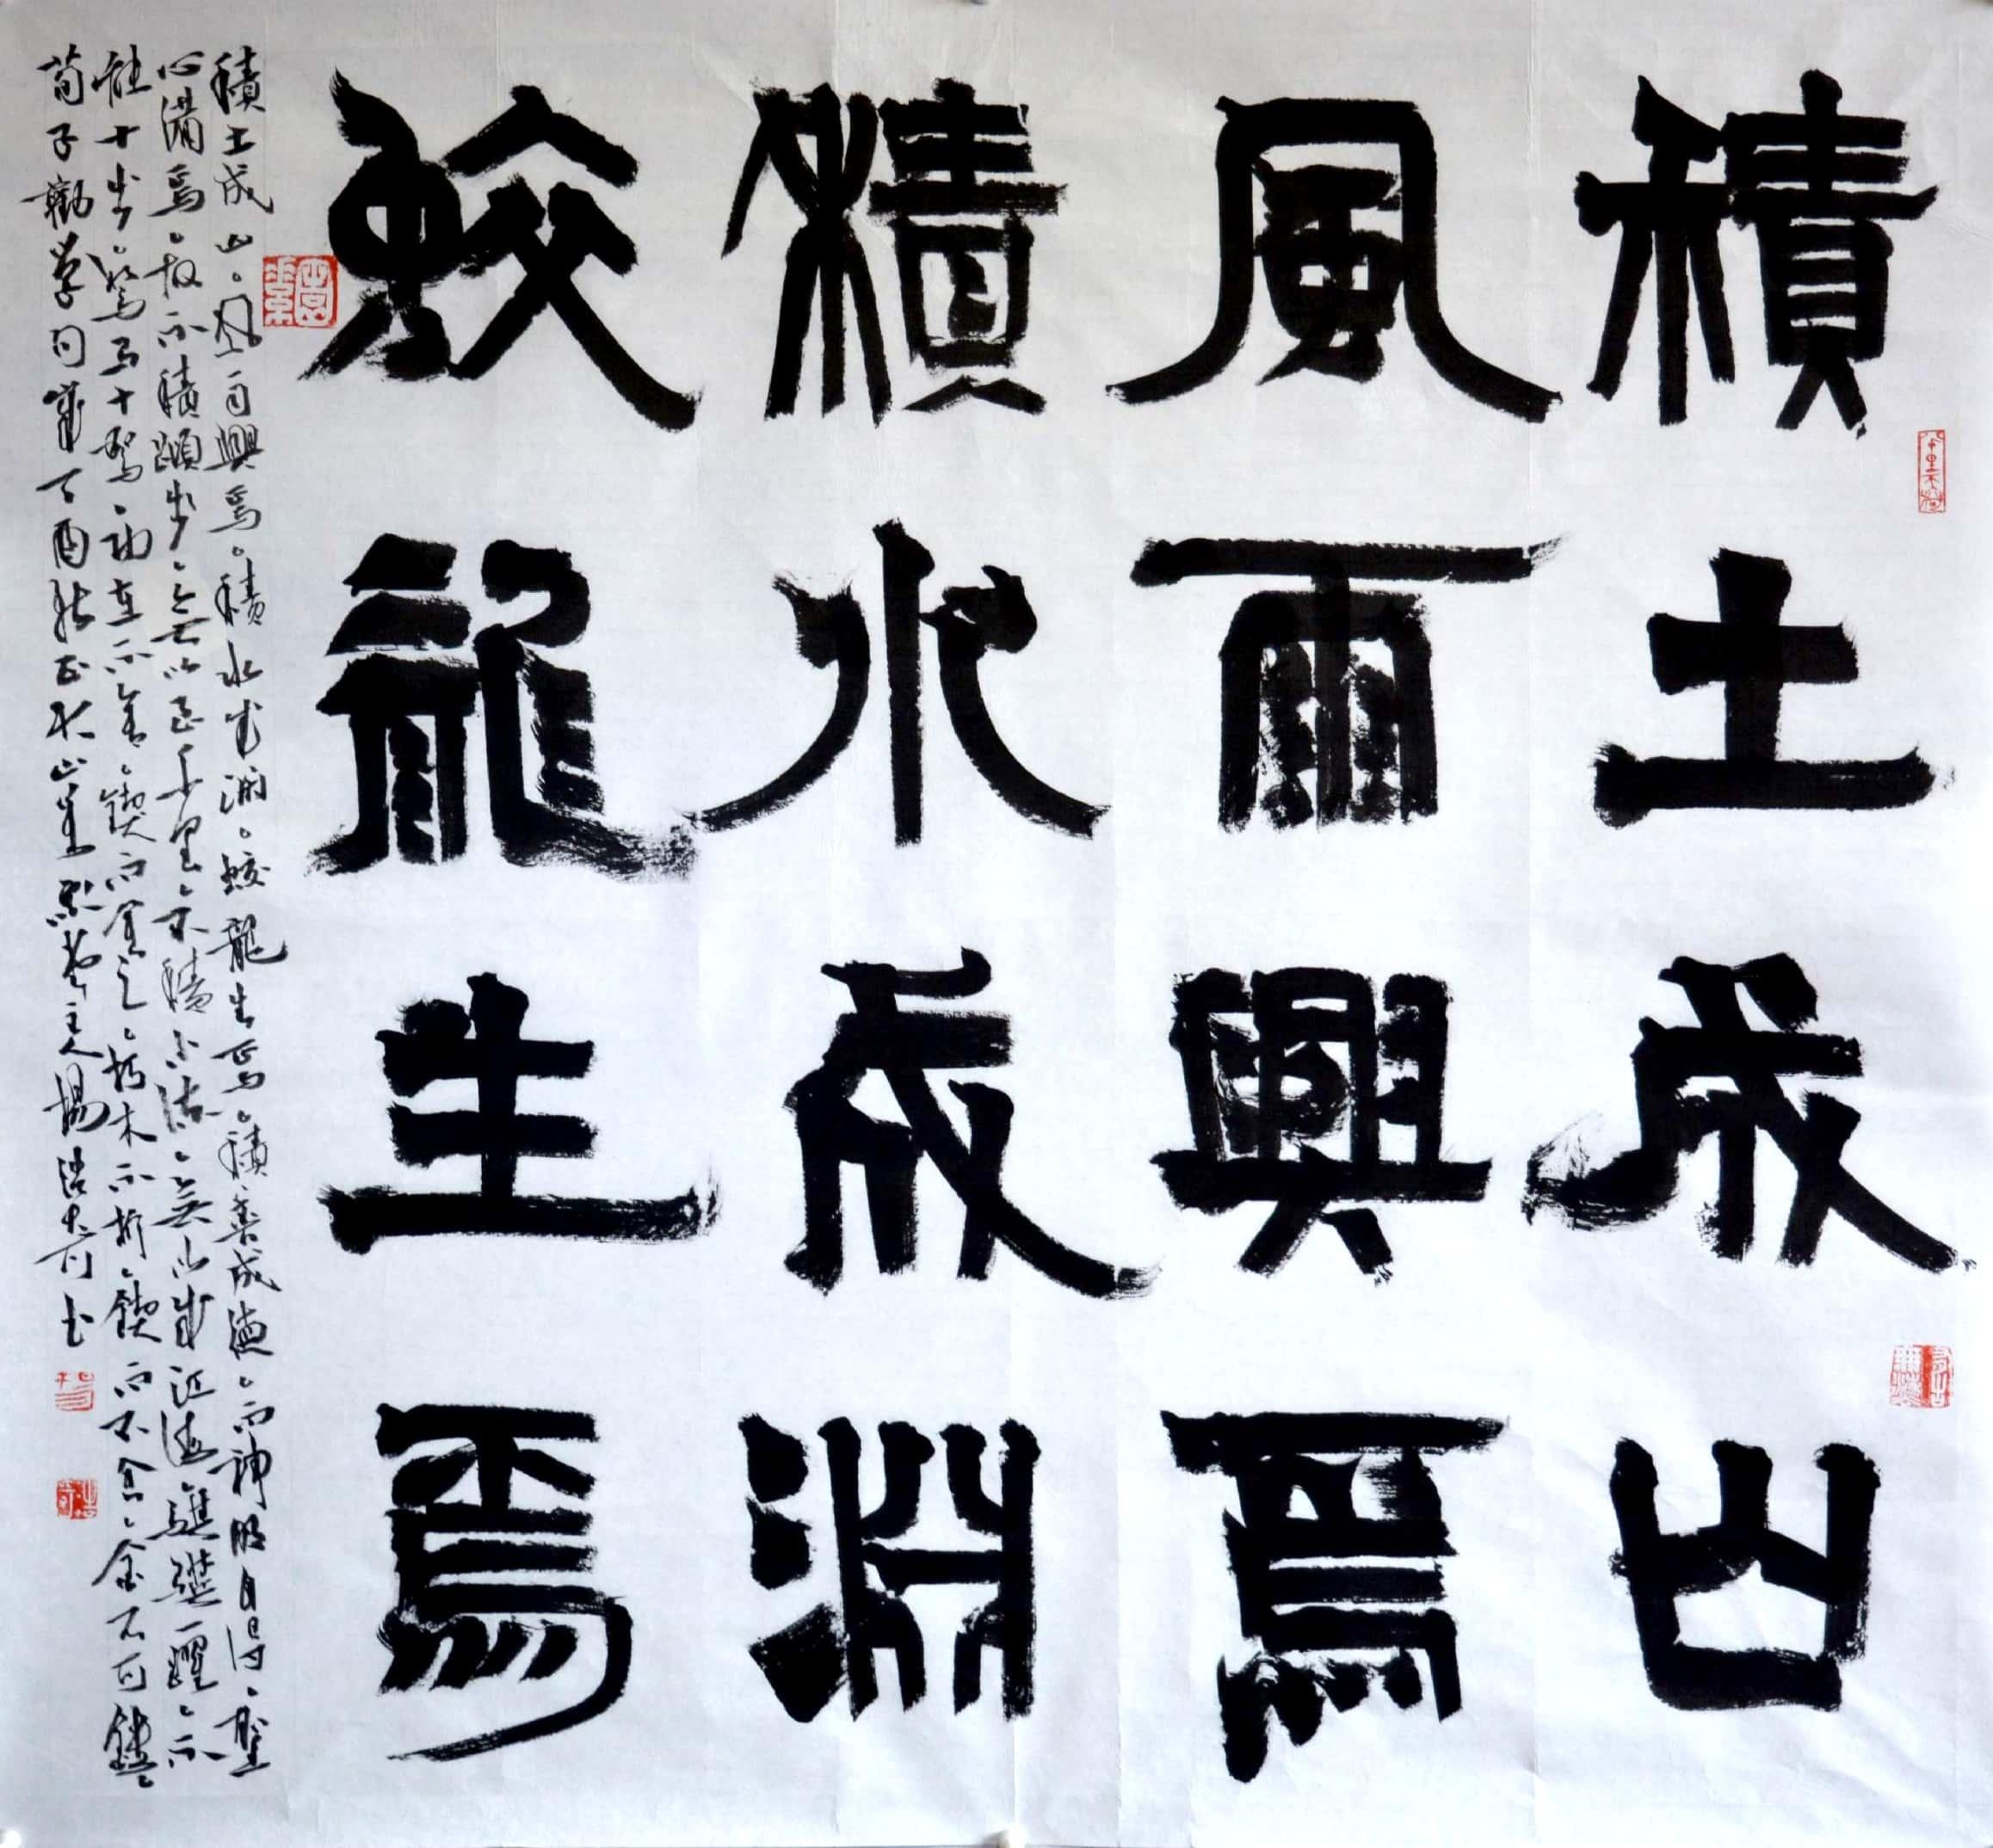 積土成山
風雨興焉
積水成淵
蛟龍生焉
積土成山風雨興焉積水成淵蛟龍生焉積善成德而神明自得聖
心備焉故不積蹞步無以至千里不積小流無以成江海騏驥一躍不
能十步駑馬十駕功在不舍鍥而舍之朽木不折鍥而不舍金石可鏤
荀子勸學句歲丁酉於正大山堂主人楊浩奇书